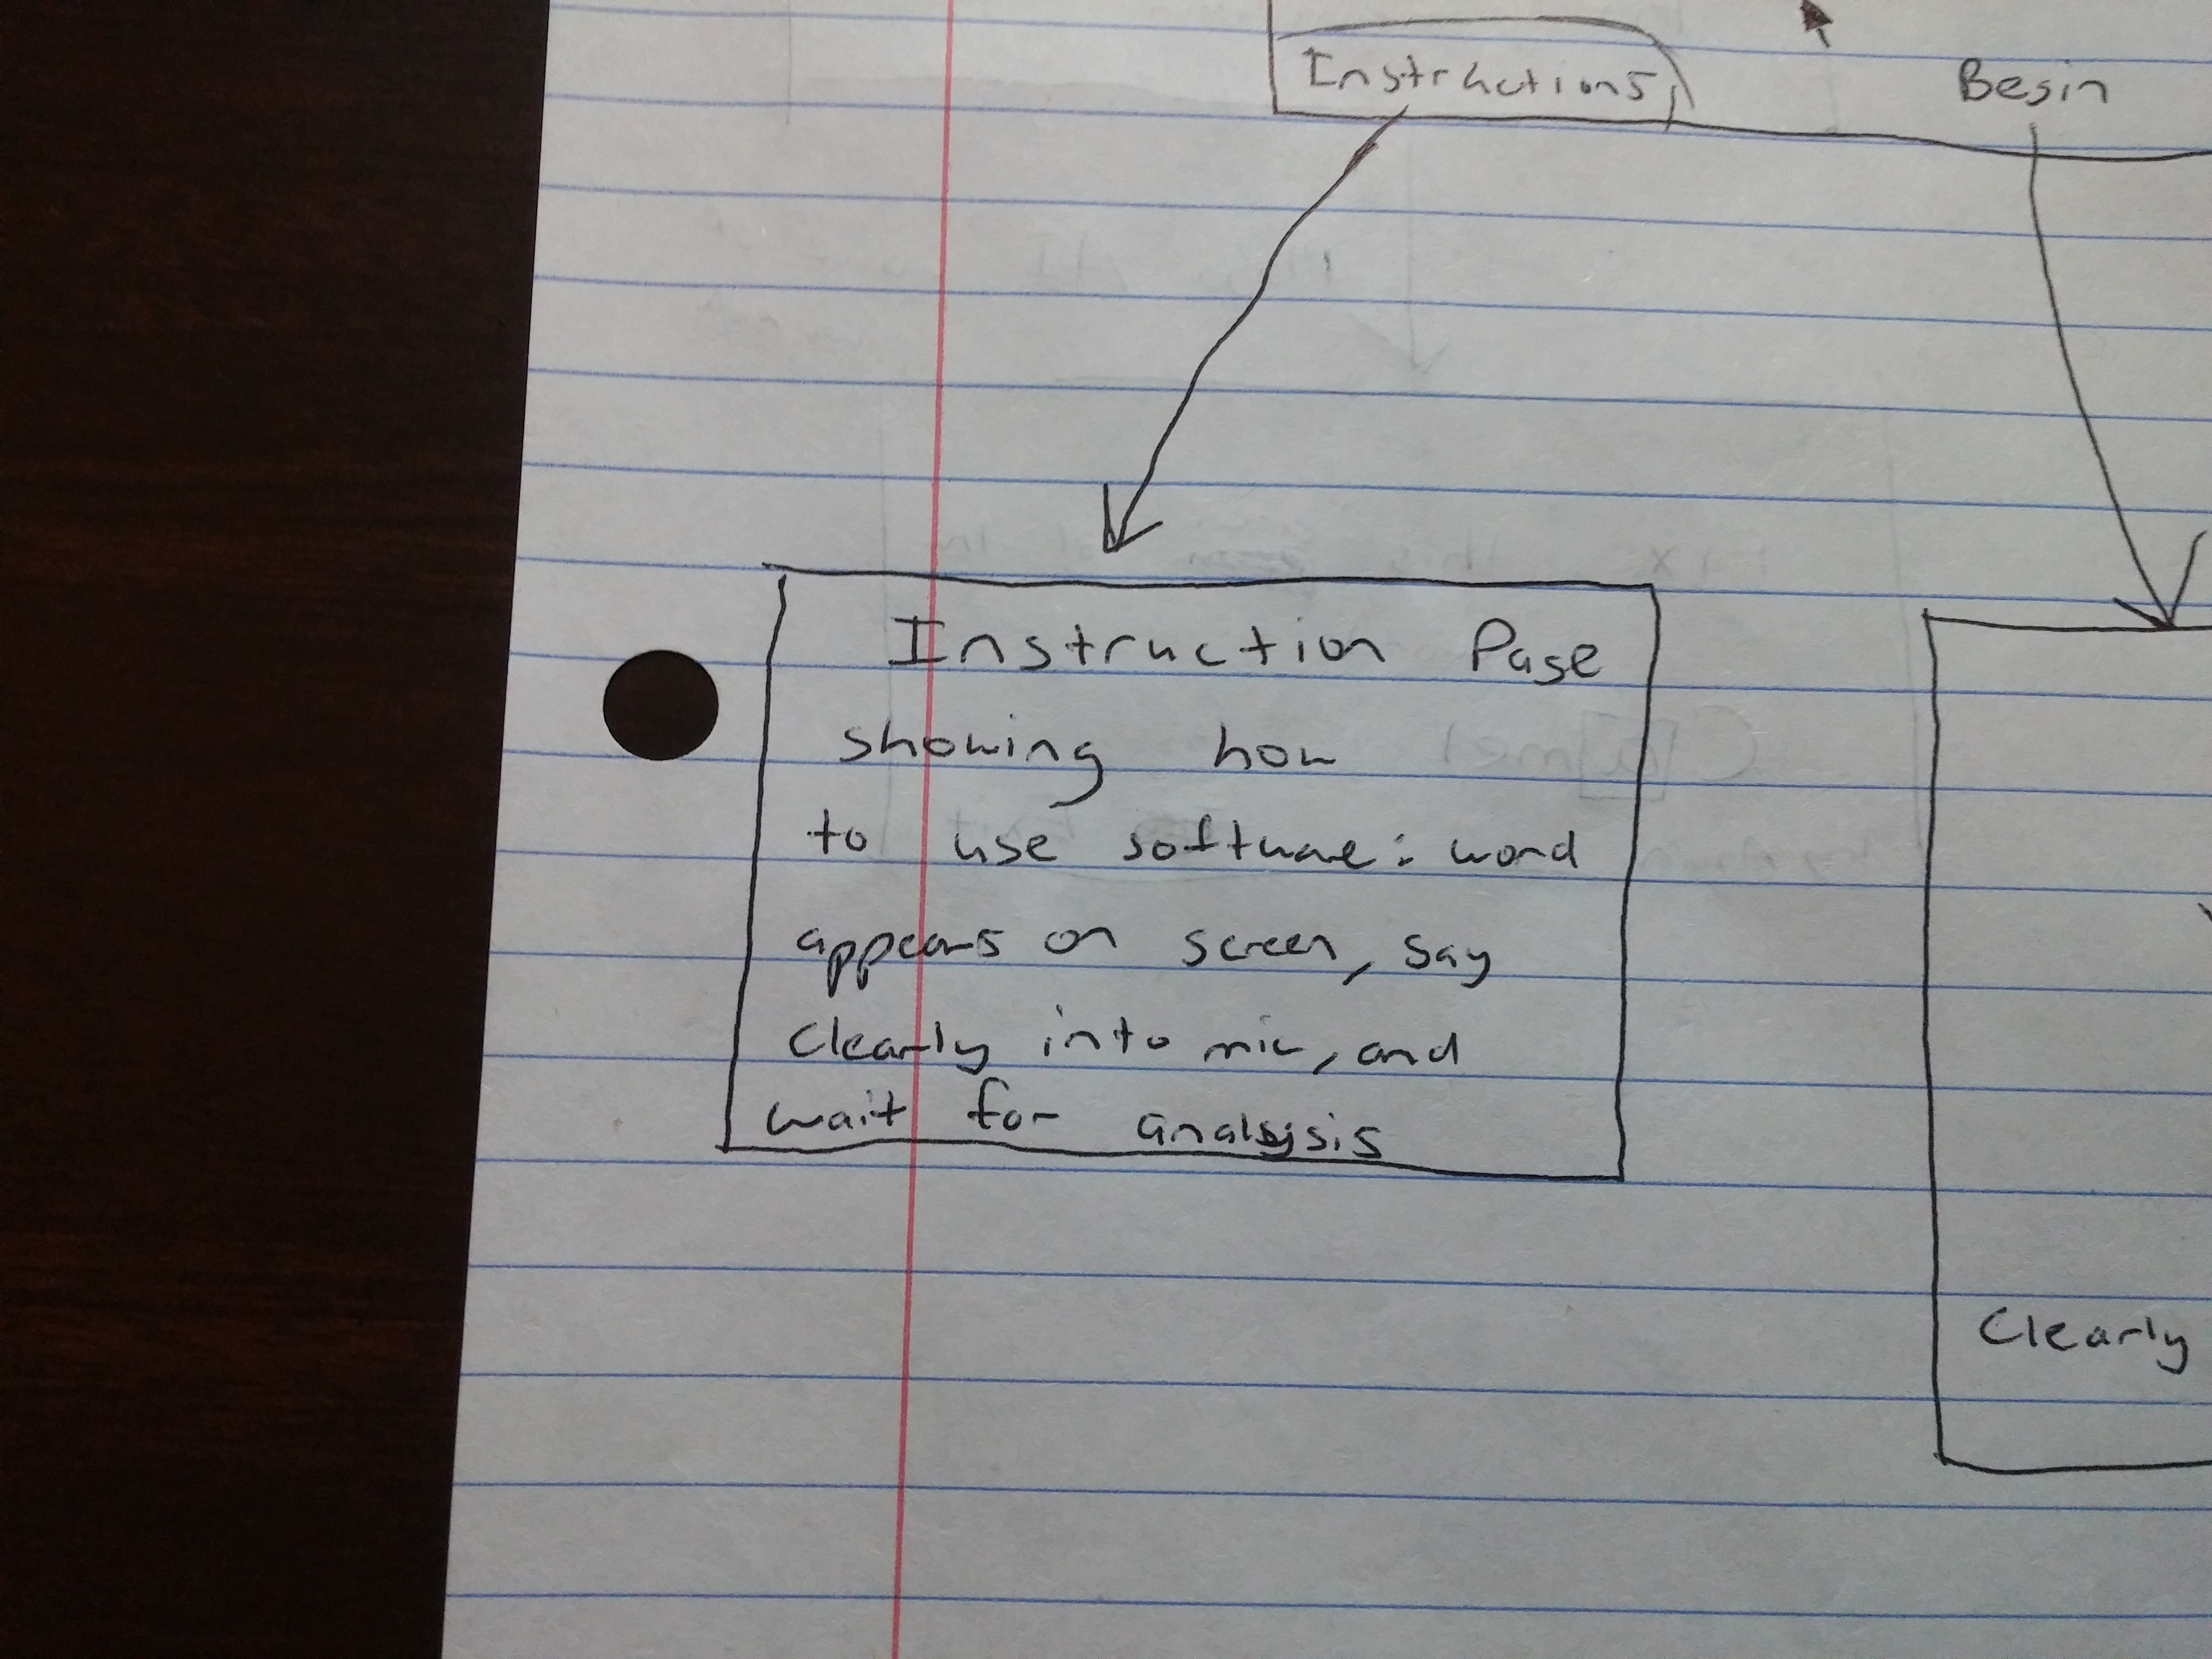 Instructions
Begin
Instruction Page
showing how
to use software: word
appears on screen, say
clearly into mic, and
wait for analysis
Clearly